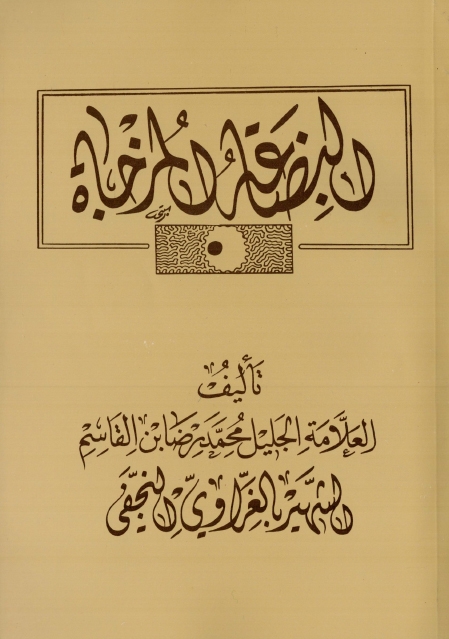 البِضَاعَة المُزجَاة
تأليفُ
العَلَّامَةِ الجَليل مُحمَّد رضَا ابن القَاسِم
الشهير بالغَرَّاويّ النجَفي